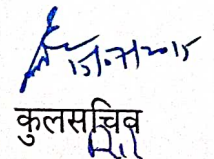 15/07/2015
कुलसचिव